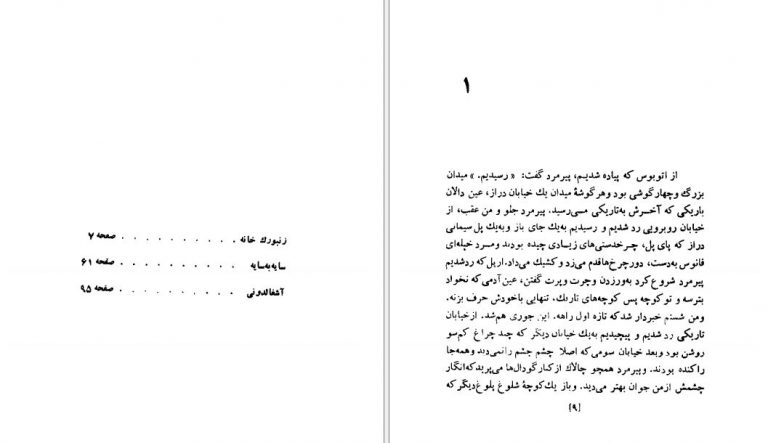 زنبورك خانه . . . . . . . . . . . صفحه ۷
سایه‌به‌سایه . . . . . . . . . . . صفحه ۶۱
آشغالدونی . . . . . . . . . . . صفحه ۹۵
۱
از اتوبوس که پیاده شدیم، پیرمرد گفت: « رسیدیم. » میدان
بزرگ وچهارگوشی بود وهرگوشهٔ میدان یك خیابان دراز، عین دالان
باریکی که آخرش به‌تاریکی می‌رسید. پیرمرد جلو و من عقب، از
خیابان روبرویی رد شدیم و رسیدیم به‌یك جای باز وبه‌یك پل سیمانی
دراز که پای پل، چرخ‌دستی‌های زیادی چیده بودند ومرد خپله‌ای
فانوس به‌دست، دورچرخ‌هاقدم می‌زد و کشیك می‌داد. ازپل که ردشدیم
پیرمرد شروع کرد به‌ورزدن وچرت وپرت گفتن، عین آدمی که نخواد
بترسه و توکوچه پس کوچه‌های تاریك. تنهایی باخودش حرف بزنه.
ومن شستم خبردار شدکه تازه اول راهه. این جوری هم‌شد. ازخیابان
تاریکی رد شدیم و پیچیدیم به‌یك خیابان دیگر که چند چراغ کم‌سو
روشن بود وبعد خیابان سومی‌که اصلا چشم چشم رانمی‌دید وهمه‌جا
راکنده بودند. وپیرمرد همچو چالاك ازکنارگودال‌ها می‌پریدکه‌انگار
چشمش ازمن جوان بهتر می‌دید. وباز یك‌کوچهٔ شلوغ پلوغ‌دیگرکه
[۹]